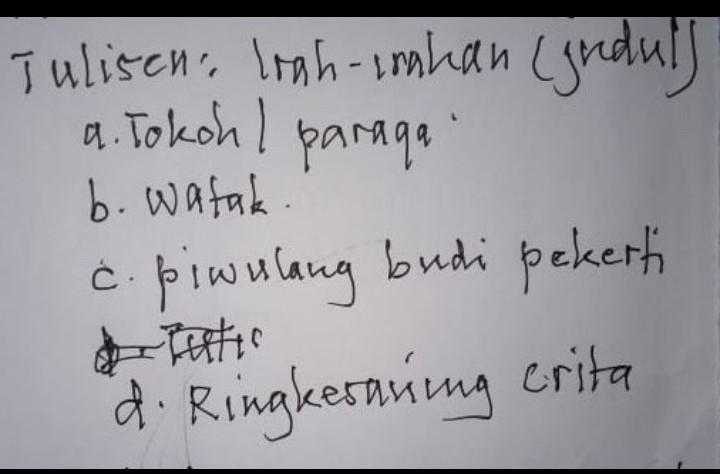 Tulisen: Irah-irahan (judul)
a. Tokoh / paraga
b. Watak.
c. piwulang budi pekerti
d. Ringkesaning crita